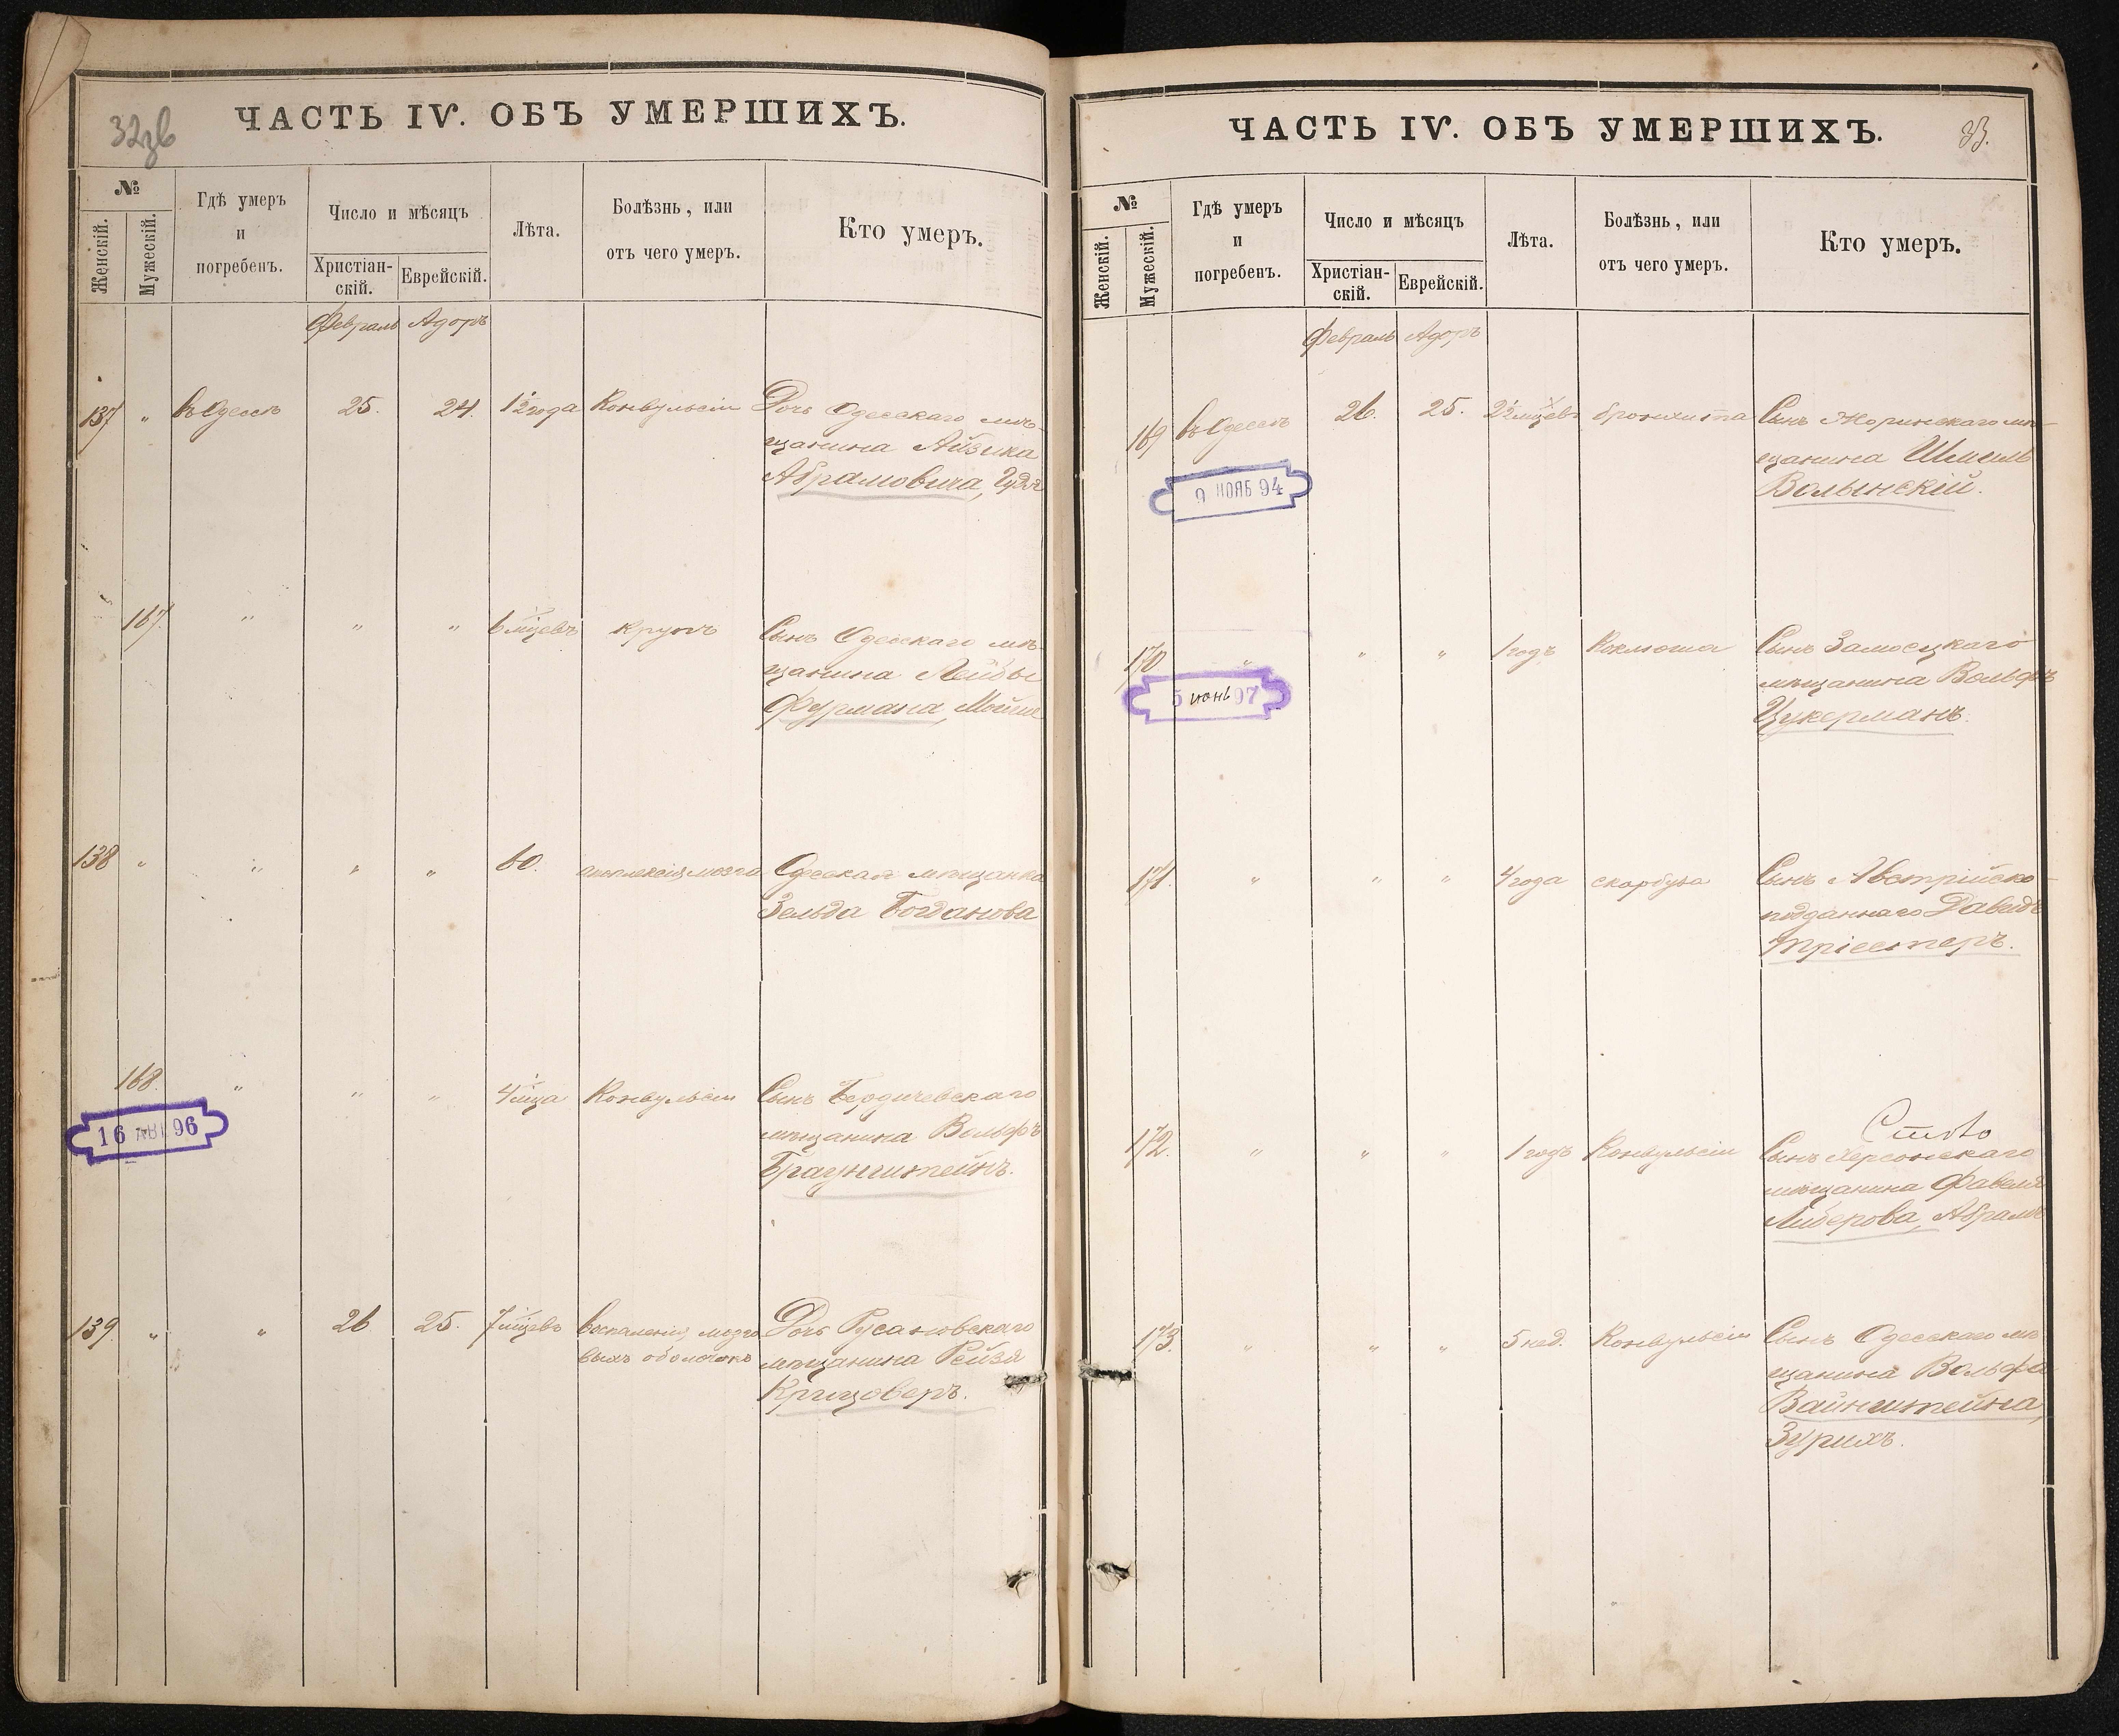 32зв
ЧАСТЬ IV. ОБЪ УМЕРШИХЪ.
№
Женскій.
Мужескій.
Гдѣ умеръ
и
погребенъ.
Число и мѣсяцъ
Христіан-
скій.
Еврейскій.
Лѣта.
Болѣзнь, или
отъ чего умеръ.
Кто умеръ.
Февраль Адоръ
137 " въ Одессѣ 25. 24. 1½ года Конвульсіи Дочь Одесскаго мѣ-
щанина Айзика
Абрамовича,
167. " " " 6 мѣцевъ крупъ Сынъ Одесскаго мѣ-
щанина Лейбы
Фурмана, Мойше
138 " " " " 60. апоплексія мозга Одесская мѣщанка
Зельда Богданова
168. " " " 4 мца Конвульсіи Сынъ Бердичевскаго
мѣщанина Вольфъ
Браунштейнъ.
16 АВГ 96
139. " " 26 25. 7 мѣцевъ воспаленія мозго
выхъ оболочекъ
Дочь Русановскаго
мѣщанина Рейзя
Крицоверъ.
ЧАСТЬ IV. ОБЪ УМЕРШИХЪ.
33.
№
Женскій.
Мужескій.
Гдѣ умеръ
и
погребенъ.
Число и мѣсяцъ
Христіан-
скій.
Еврейскій.
Лѣта.
Болѣзнь, или
отъ чего умеръ.
Кто умеръ.
Февраль Адоръ
169 въ Одессѣ 26. 25. 2½ мѣцевъ бронхита Сынъ Жоринскаго мѣ-
щанина Шмиль
Волынскій.
9 НОЯБ 94
170 " " " 1 годъ Коклюша Сынъ Замосцкаго
мѣщанина Вольфъ
Цукерманъ.
5 июнь 97
171. " " " 4 года скорбута Сынъ Австрійско-
подданнаго Давидъ
Тріестеръ.
172. " " " 1 годъ Конвульсіи Сынъ Херсонскаго
мѣщанина Фавеля
Либерова, Абрамъ
173. " " " 5 нед. Конвульсіи Сынъ Одесскаго мѣ
щанина Вольфа
Вайнштейна,
Зурихъ.